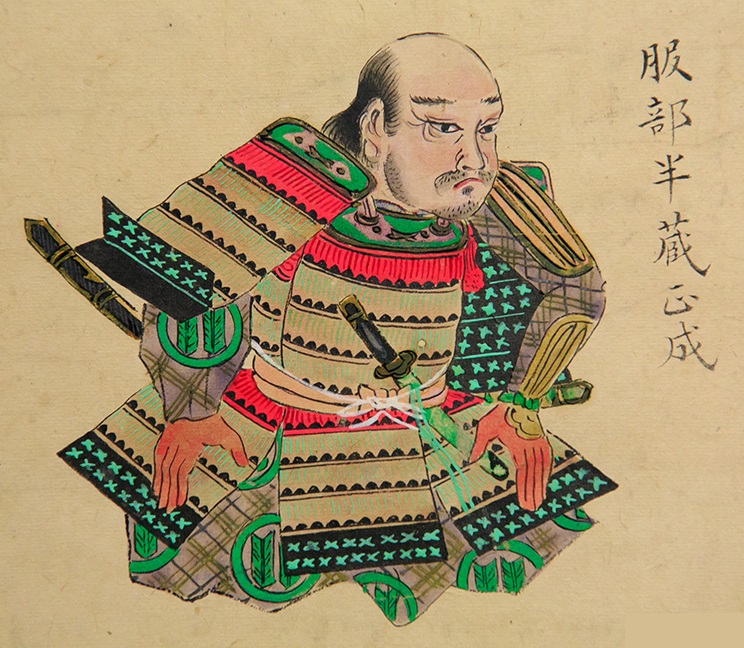 服部半蔵正成